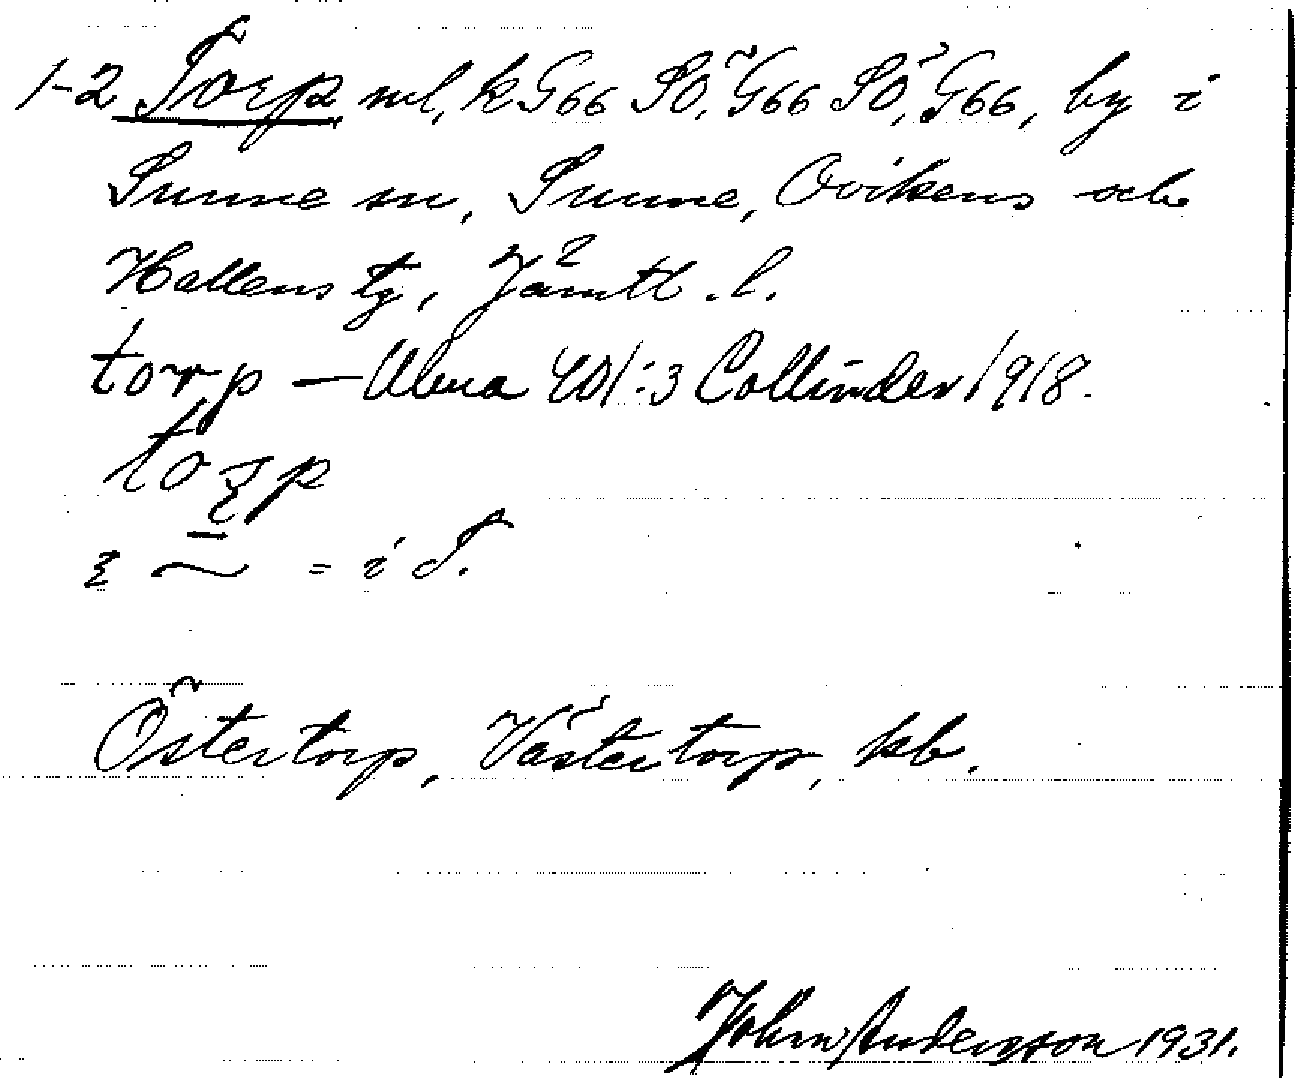 1-2 Torp ml, k G66 SO, G66 SO, G66, by i
Sunne sn, Sunne, Ovikens och
Hallens tg, Jämtl. l.
torp — Alma 401:3 Collinder 1918.
torp
= i T.
Östertorp, Västertorp, kb.
John Andersson 1931.